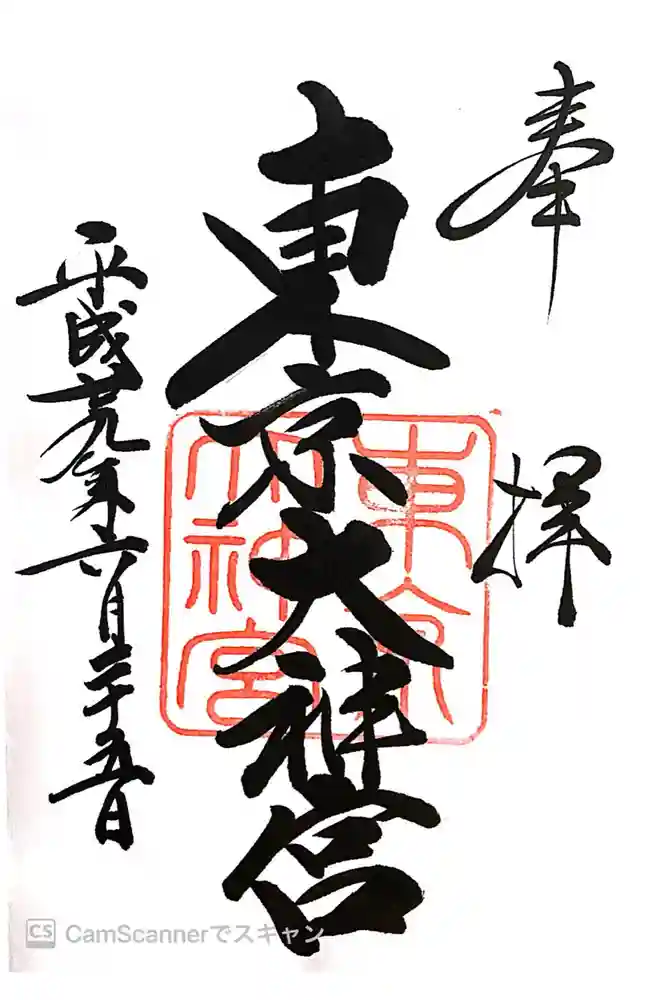 奉拝
東京大神宮
東京大神宮
平成廿九年六月二十五日
CS CamScannerでスキャン